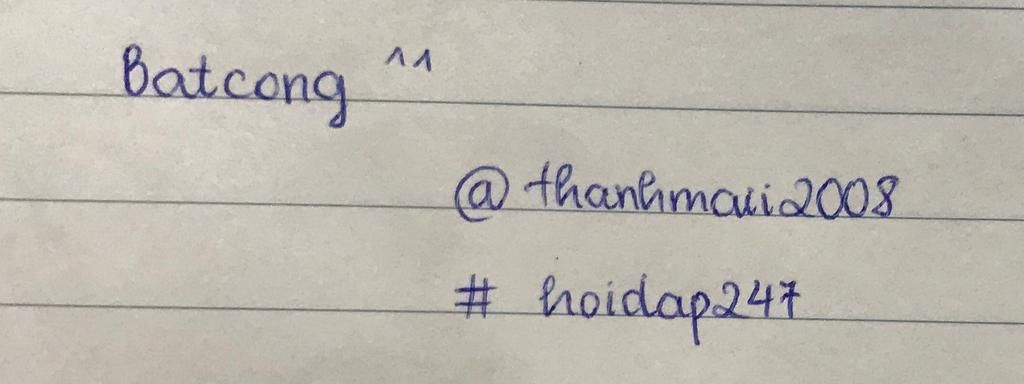 Batcong ^^
@thanhmaui2008
# hoidap247